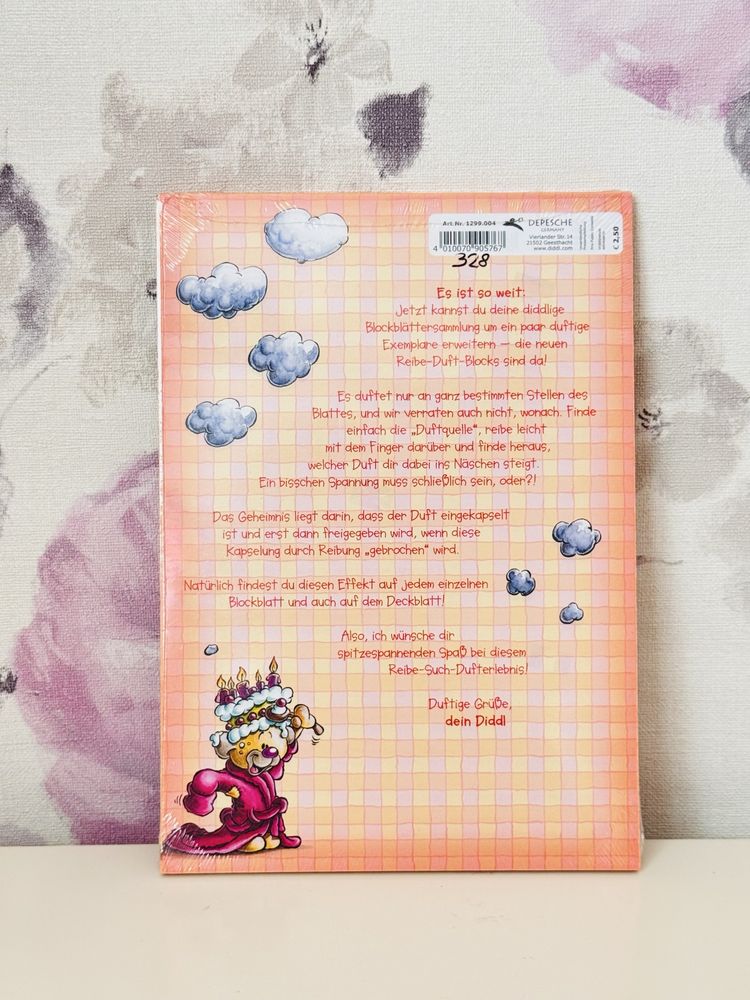 Art.Nr. 1299.004
DEPESCHE
GERMANY
Vierlander Str. 14
21502 Geesthacht
www.diddl.com
€ 2,50
4 010070 905767
328
Es ist so weit:
Jetzt kannst du deine diddlige
Blockblättersammlung um ein paar duftige
Exemplare erweitern – die neuen
Reibe-Duft-Blocks sind da!
Es duftet nur an ganz bestimmten Stellen des
Blattes, und wir verraten auch nicht, wonach. Finde
einfach die „Duftquelle“, reibe leicht
mit dem Finger darüber und finde heraus,
welcher Duft dir dabei ins Näschen steigt.
Ein bisschen Spannung muss schließlich sein, oder?!
Das Geheimnis liegt darin, dass der Duft eingekapselt
ist und erst dann freigegeben wird, wenn diese
Kapselung durch Reibung „gebrochen“ wird.
Natürlich findest du diesen Effekt auf jedem einzelnen
Blockblatt und auch auf dem Deckblatt!
Also, ich wünsche dir
spitzespannenden Spaß bei diesem
Reibe-Such-Dufterlebnis!
Duftige Grüße,
dein Diddl